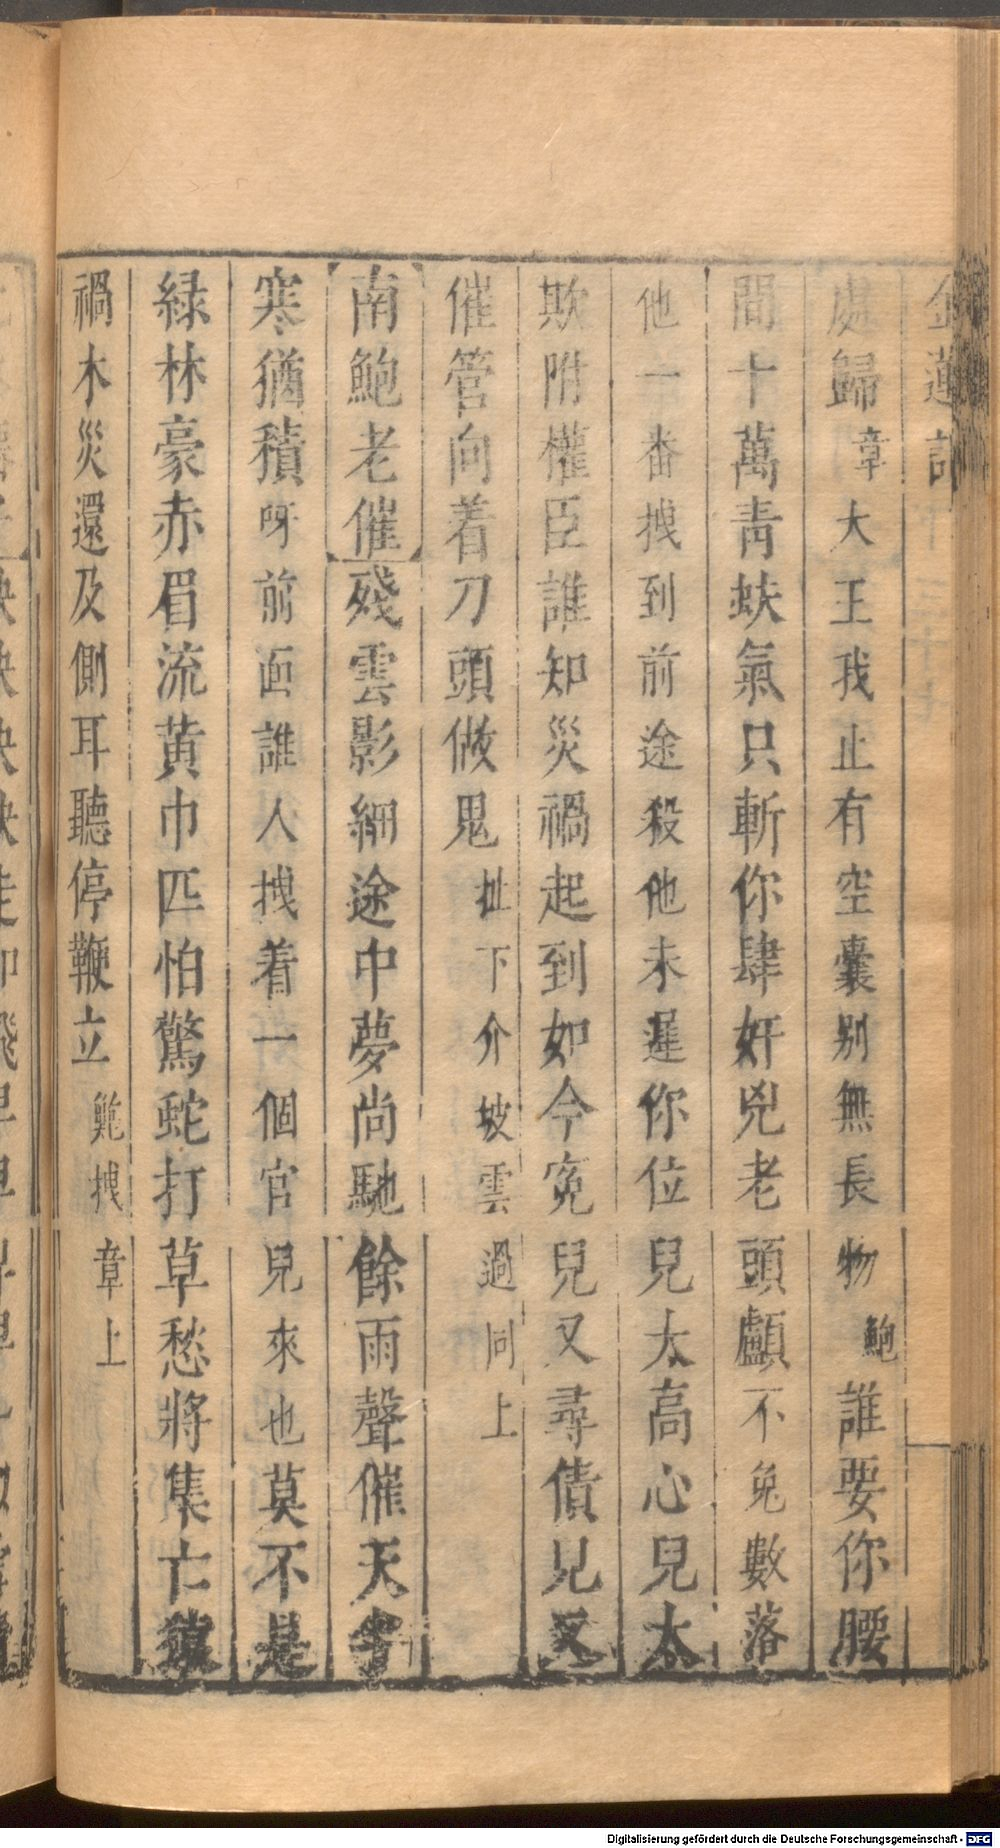 金蓮記
處歸章大王我止有空囊别無長物鮑誰要你腰
間十萬青蚨氣只斬你肆奸兇老頭顱不免數落
他一番拽到前途殺他未遲你位兒太高心兒太
欺附權臣誰知災禍起到如今冤兒又尋債兒又
催管向着刀頭做鬼扯下介坡雲過同上
南鮑老催殘雲影細途中夢尚馳餘雨聲催天
寒猶積呀前面誰人拽着一個官兒來也莫不是
緑林豪赤眉流黄巾匹怕驚蛇打草愁將集亡
禍木災還及側耳聽停鞭立鮑拽章上
Digitalisierung gefördert durch die Deutsche Forschungsgemeinschaft - DFG